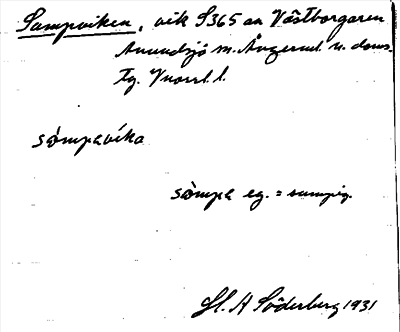 Sampviken, vik S365 an Västborgaren
Anundsjö m. Ångerml. n. doms.
Tg. Vnorrl. l.
sòmpavíka
sòmpa eg. = sumpig.
Hl. A Söderberg 1931